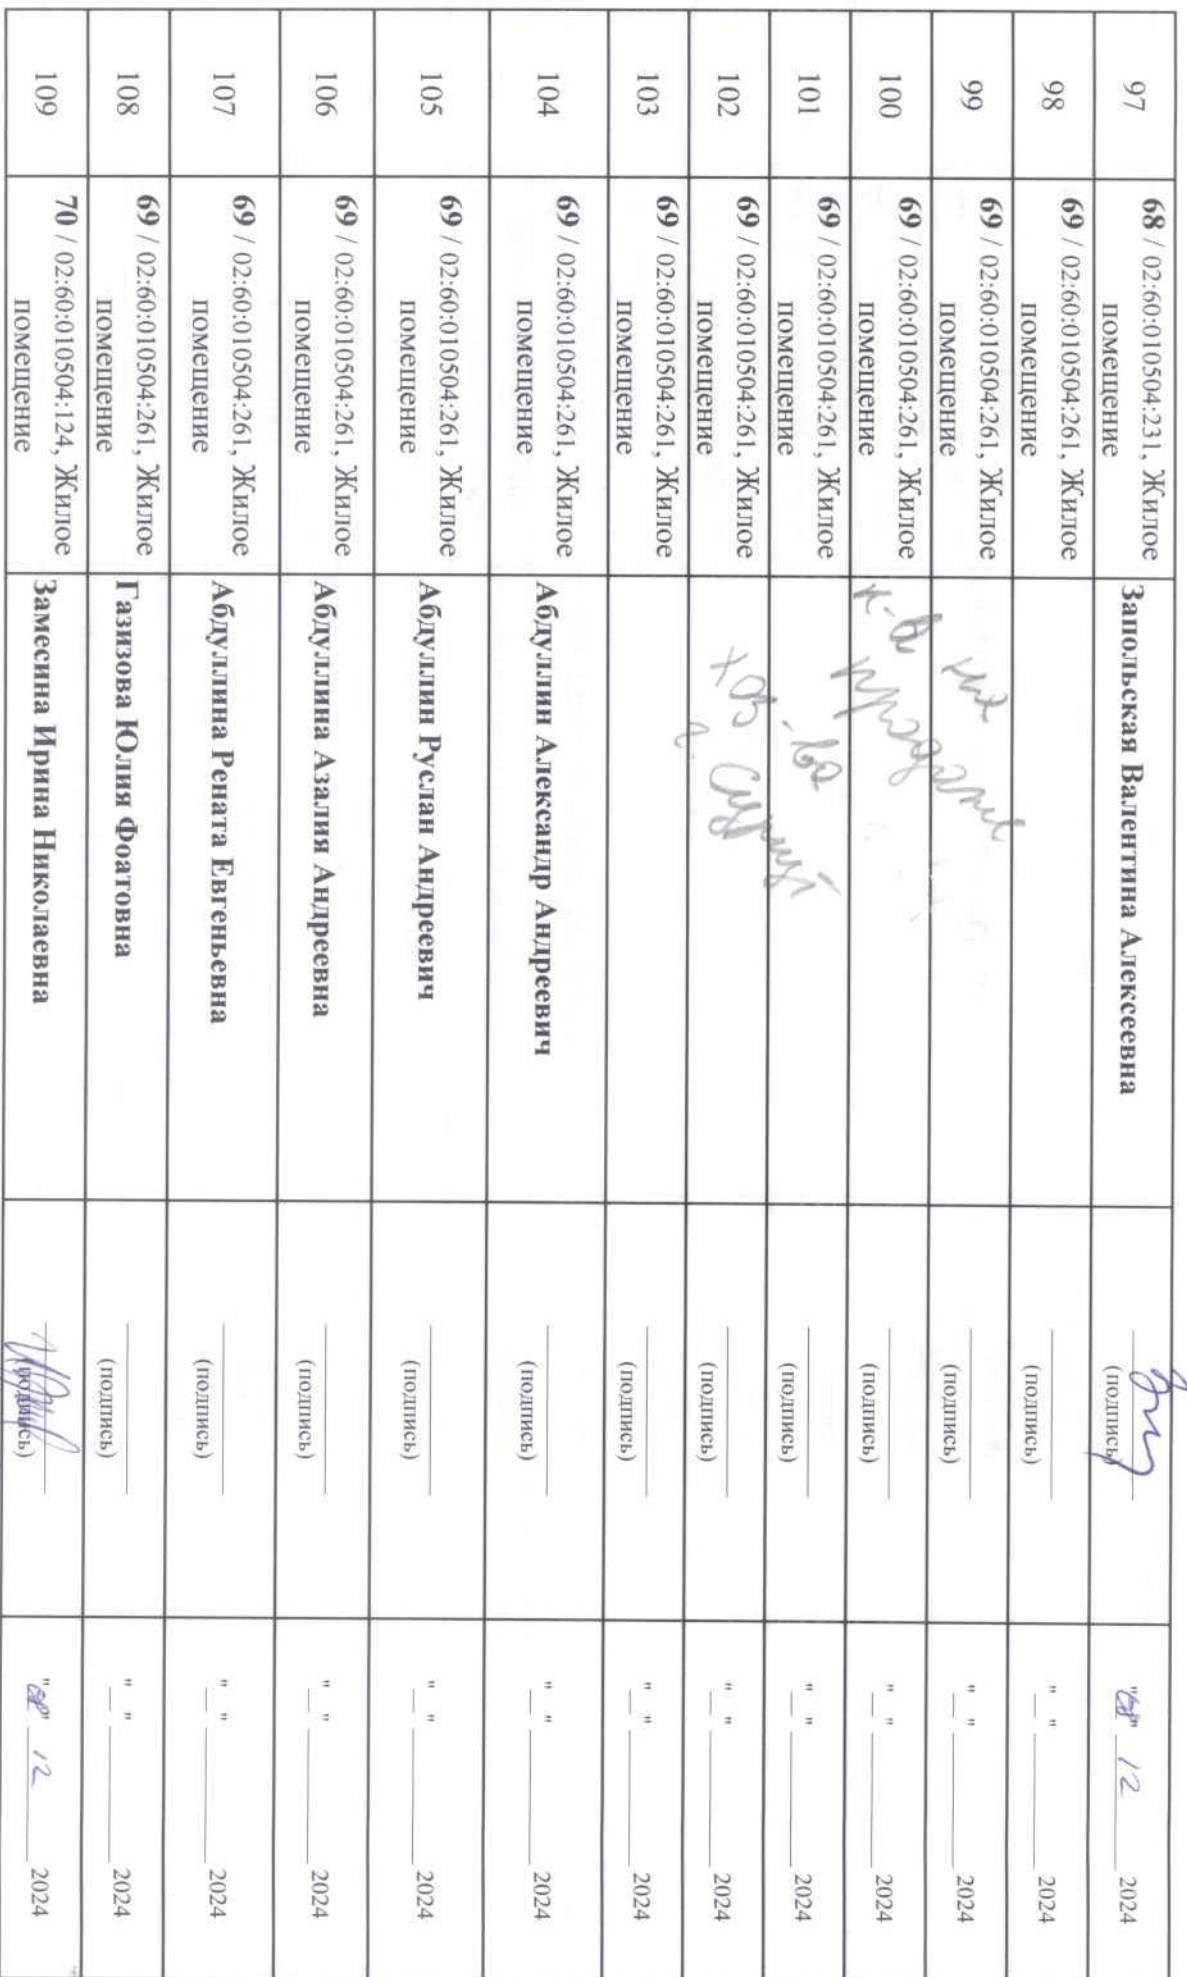 97 68 / 02:60:010504:231, Жилое помещение Запольская Валентина Алексеевна (подпись) "08" 12 2024
98 69 / 02:60:010504:261, Жилое помещение (подпись) "__" ______ 2024
99 69 / 02:60:010504:261, Жилое помещение (подпись) "__" ______ 2024
100 69 / 02:60:010504:261, Жилое помещение (подпись) "__" ______ 2024
101 69 / 02:60:010504:261, Жилое помещение (подпись) "__" ______ 2024
102 69 / 02:60:010504:261, Жилое помещение (подпись) "__" ______ 2024
103 69 / 02:60:010504:261, Жилое помещение (подпись) "__" ______ 2024
к-в
хоз-во
г. Сургут
104 69 / 02:60:010504:261, Жилое помещение Абдуллин Александр Андреевич (подпись) "__" ______ 2024
105 69 / 02:60:010504:261, Жилое помещение Абдуллин Руслан Андреевич (подпись) "__" ______ 2024
106 69 / 02:60:010504:261, Жилое помещение Абдуллина Азалия Андреевна (подпись) "__" ______ 2024
107 69 / 02:60:010504:261, Жилое помещение Абдуллина Рената Евгеньевна (подпись) "__" ______ 2024
108 69 / 02:60:010504:261, Жилое помещение Газизова Юлия Фоатовна (подпись) "__" ______ 2024
109 70 / 02:60:010504:124, Жилое помещение Замесина Ирина Николаевна (подпись) 12 2024